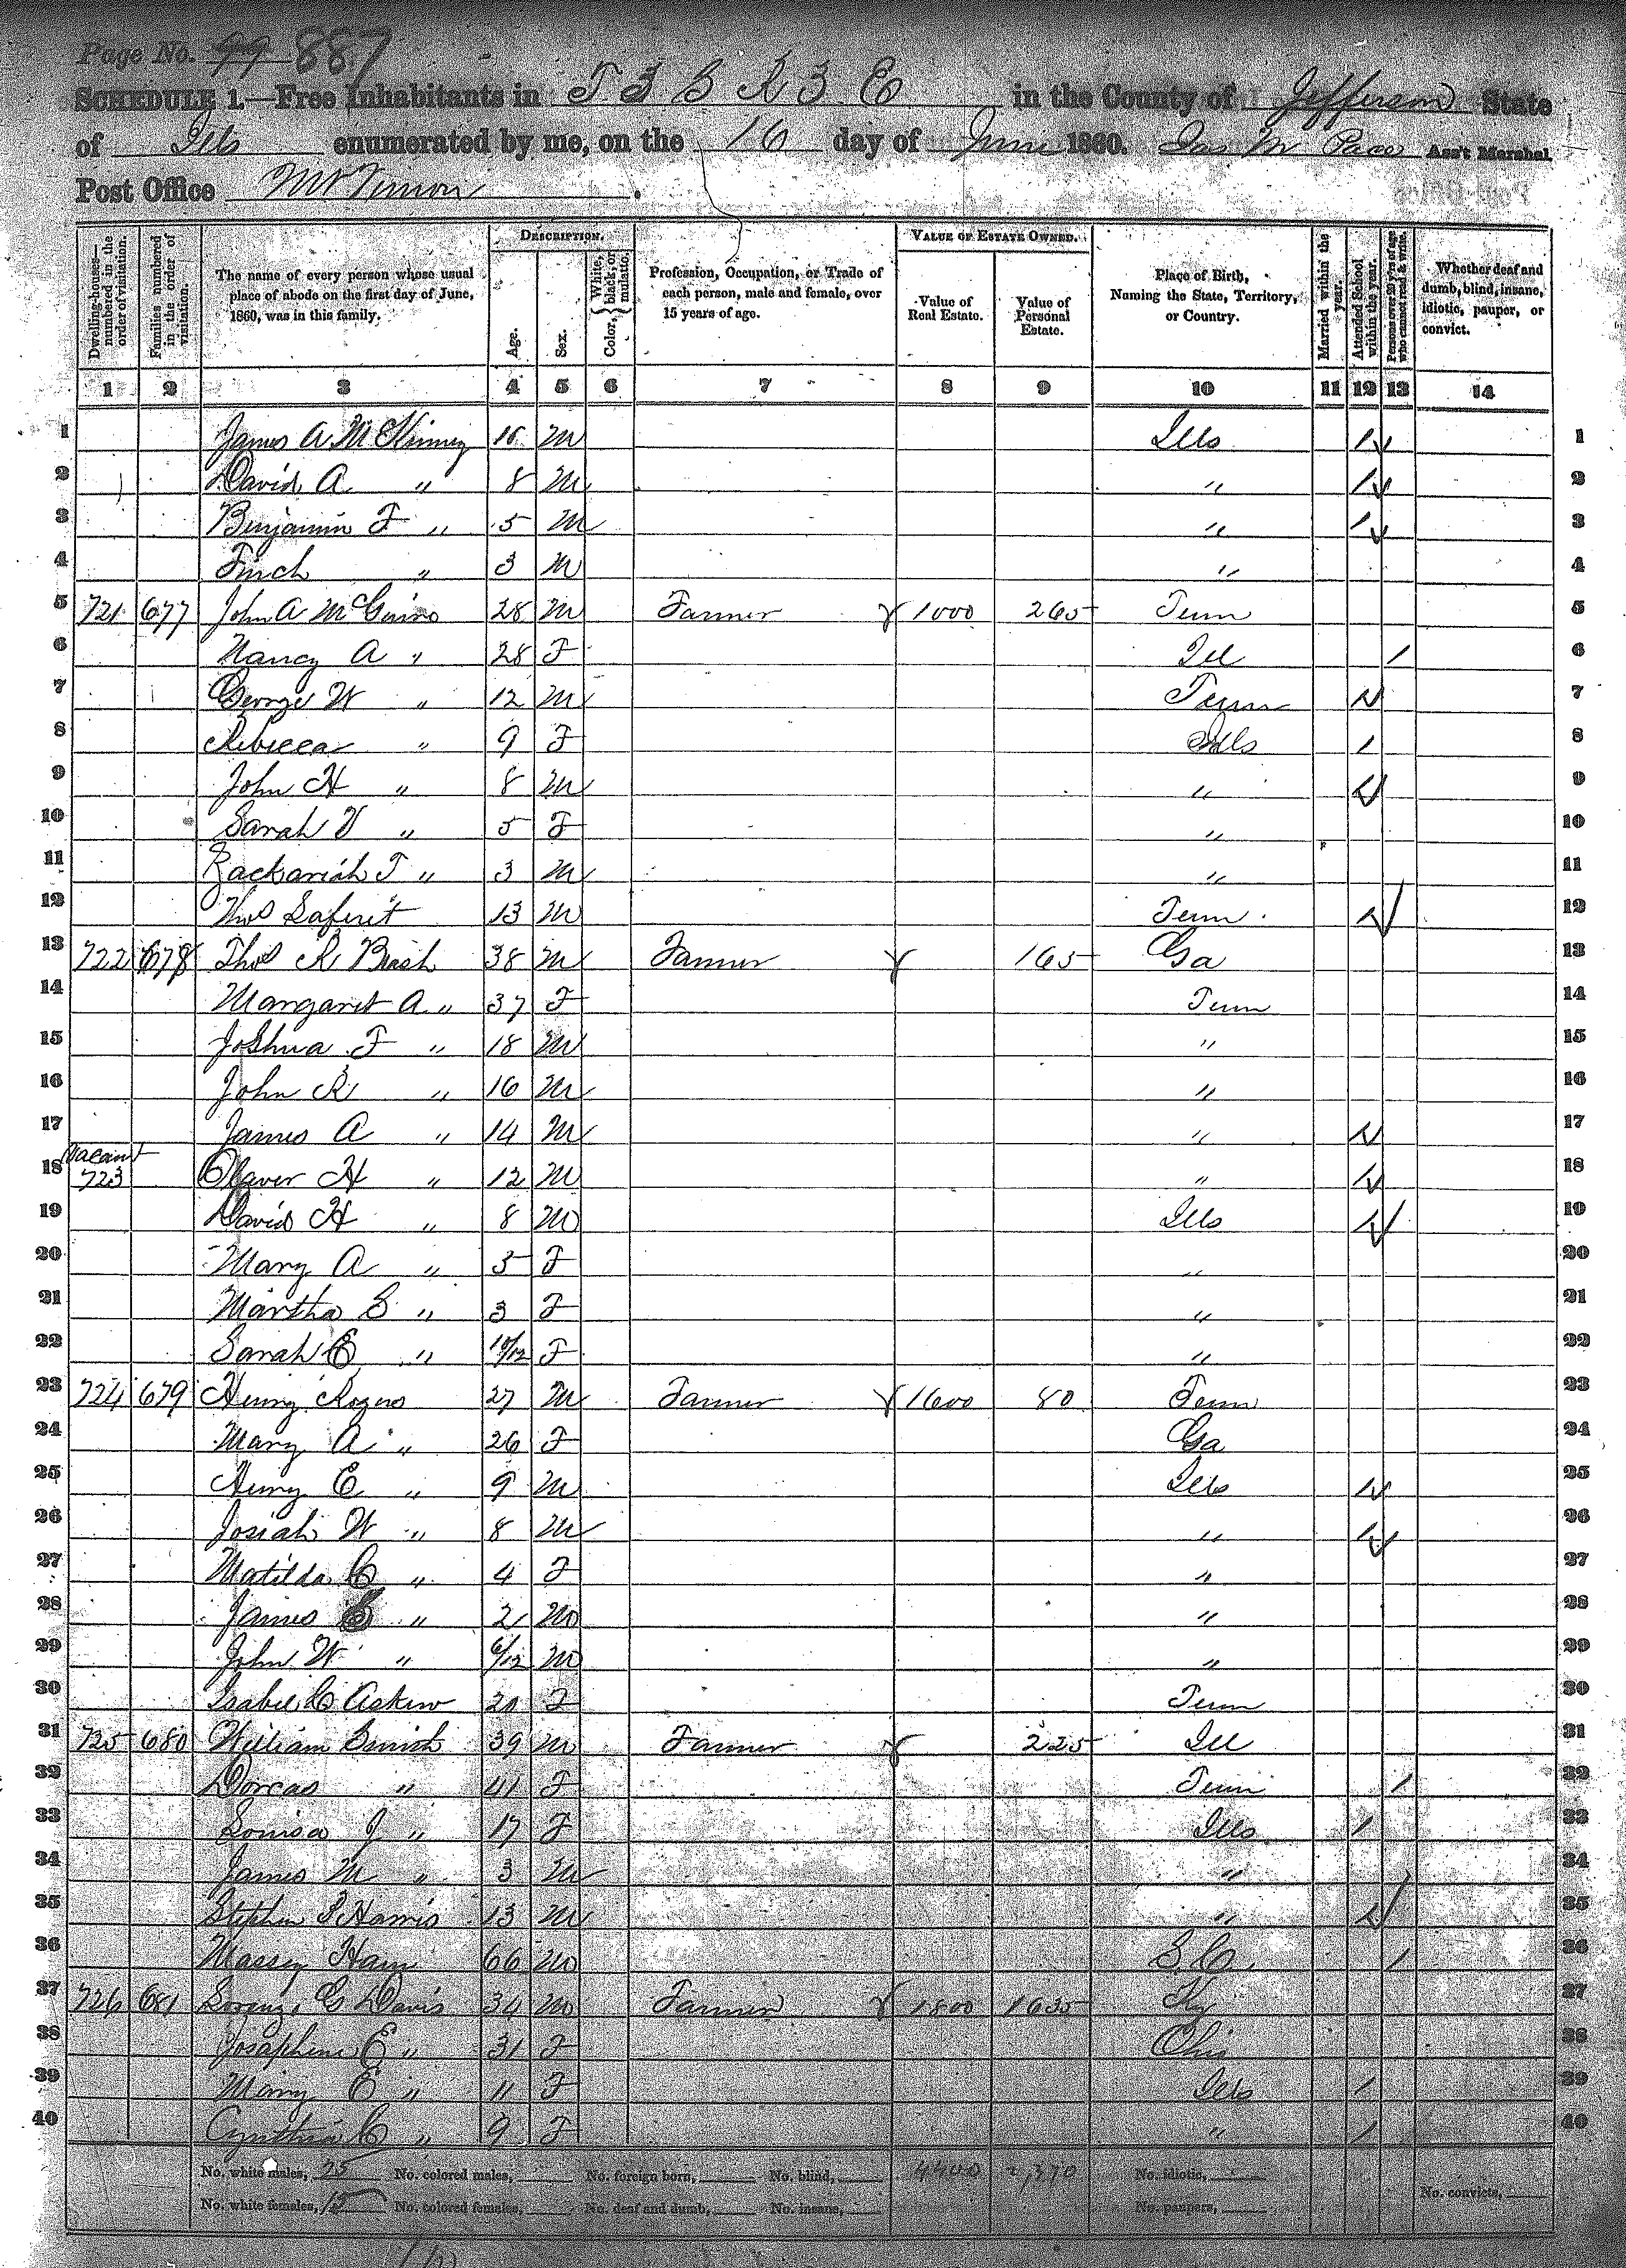 Page No. 99 887
SCHEDULE 1.—Free Inhabitants in T 3 S R 3 E in the County of Jefferson State
of Ills enumerated by me, on the 16 day of June 1860. Jas M Pace Ass't Marshal
Post Office Mt Vernon.
Dwelling-houses—numbered in the order of visitation. Families numbered in the order of visitation. The name of every person whose usual place of abode on the first day of June, 1860, was in this family. DESCRIPTION. Age. Sex. Color, {White, black, or mulatto. Profession, Occupation, or Trade of each person, male and female, over 15 years of age. VALUE OF ESTATE OWNED. Value of Real Estate. Value of Personal Estate. Place of Birth, Naming the State, Territory, or Country. Married within the year. Attended School within the year. Persons over 20 y'rs of age who cannot read & write. Whether deaf and dumb, blind, insane, idiotic, pauper, or convict.
1 2 3 4 5 6 7 8 9 10 11 12 13 14
1 James A McKinney 10 M Ills / 1
2 David A " 8 M " / 2
3 Benjamin F " 5 M " / 3
4 Finch " 3 M " 4
5 721 677 John A McGuire 28 M Farmer 1000 265 Tenn 5
6 Nancy A " 28 F Ill / 6
7 George W " 12 M Tenn / 7
8 Rebecca " 9 F Ills / 8
9 John H " 8 M " / 9
10 Sarah V " 5 F " 10
11 Zackariah T " 3 M " 11
12 Thos 13 M Tenn. / 12
13 722 678 Thos R 38 M Farmer 165 Ga 13
14 Margaret A " 37 F Tenn 14
15 Joshua F " 18 M " 15
16 John R " 16 M " 16
17 James A " 14 M " / 17
18 Vacant 723 Olaver H " 12 M " / 18
19 David H " 8 M Ills / 19
20 Mary A " 5 F " 20
21 Martha S " 3 F " 21
22 Sarah E " 10/12 F " 22
23 724 679 Henry Rogers 27 M Farmer 1600 80 Tenn 23
24 Mary A " 26 F Ga 24
25 Henry C " 9 M Ills / 25
26 Josiah W " 8 M " / 26
27 Matilda C " 4 F " 27
28 James " 2 M " 28
29 John W " 6/12 M " 29
30 Isabel C Askew 20 F Tenn 30
31 725 680 William 39 M Farmer 225 Ill 31
32 Dorcas " 41 F Tenn / 32
33 Louisa J " 17 F Ills / 33
34 James M " 3 M " 34
35 Stephen Harris 13 M " / 35
36 Massey Ham 66 M S.C. / 36
37 726 681 G Davis 34 M Farmer 1800 1635 Ky 37
38 Josaphine E " 31 F Ohio 38
39 Mary E " 11 F Ills / 39
40 Cynthia C " 9 F " / 40
No. white males, 25 No. colored males, No. foreign born, No. blind, 4400 2,370 No. idiotic,
No. white females, 15 No. colored females, No. deaf and dumb, No. insane, No. paupers, No. convicts,